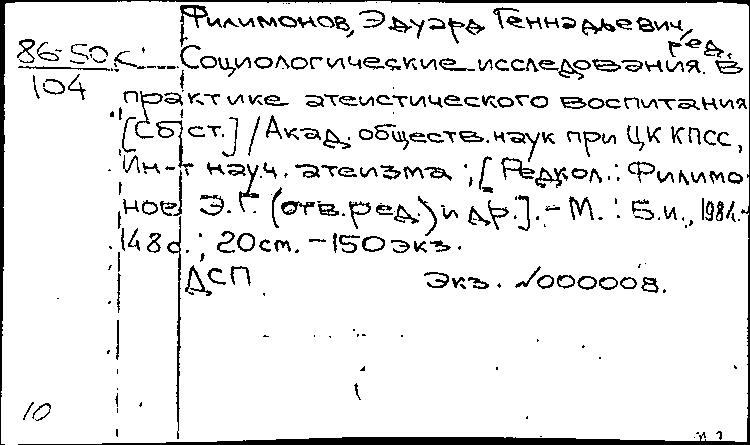 Филимонов, Эдуард Геннадьевич, ред.
86-50 Социологические исследования в
104
практике атеистического воспитания
[Сб. ст.] / Акад. обществ. наук при ЦК КПСС,
Ин-т науч. атеизма ; [Редкол.: Филимо-
нов Э.Г. (отв. ред.) и др.]. - М. : Б.и.,
148 с. ; 20 см. - 150 экз.
ДСП Экз. №000008.
10